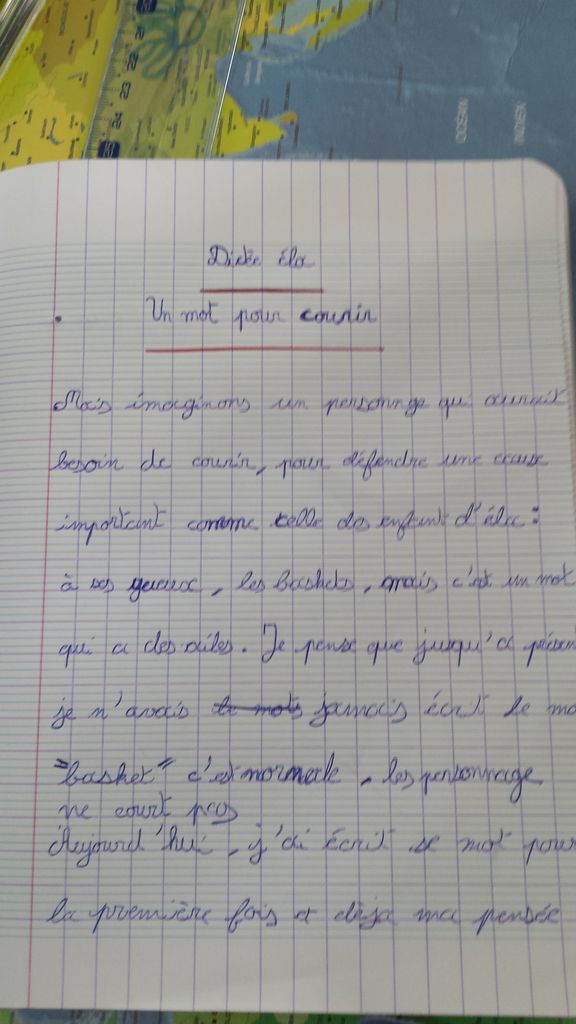 OCEAN
INDIEN
26
25
24
23
22
Dictée éla
Un mot pour courir
Mais imaginons un personnge qui aurait
besoin de courir, pour défendre une cause
important comme celle des enfant d'éla :
à ses yeaux, les baskets, mais c'est un mot
qui a des ailes. Je pense que jusqu'a présen
je n'avais le mots jamais écrit le mo
"basket" c'est normale, les personnage
ne court pas
Aujourd'hui, j'ai écrit se mot pour
la première fois et déja ma pensée